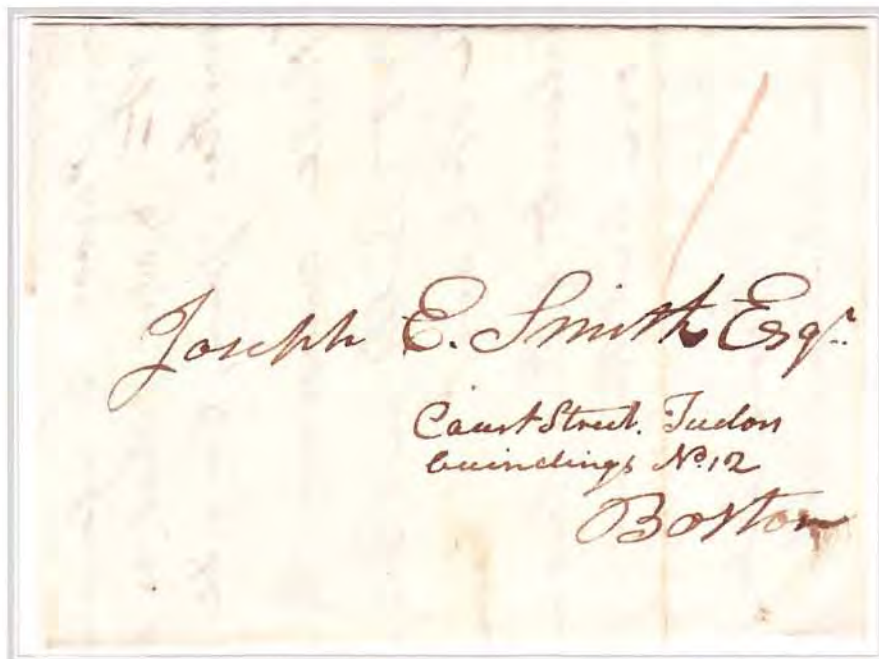 Joseph E. Smith Esqr.
Court Street. Tudors
buindings No. 12
Boston